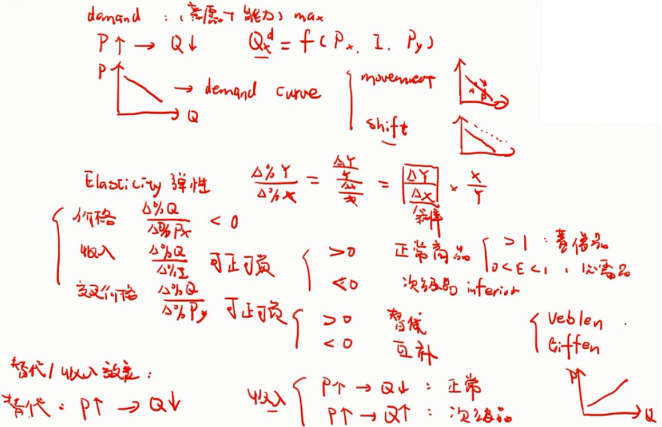 demand : (意愿+能力) max
P↑ → Q↓ Qxᵈ = f(Px, I, Py)
P
→ demand curve
Q
movement
shift
Elasticity 弹性 Δ%Y/Δ%X = (ΔY/Y)/(ΔX/X) = ΔY/ΔX × X/Y
斜率
价格 Δ%Q/Δ%Px < 0
收入 Δ%Q/Δ%I 可正可负 >0 正常商品 >1 : 奢侈品
0<ε<1 : 必需品
<0 次级品 inferior
交叉价格 Δ%Q/Δ%Py 可正可负 >0 替代
<0 互补
Veblen
Giffen
替代/收入效应 :
替代 : P↑ → Q↓
收入 P↑ → Q↓ : 正常
P↑ → Q↑ : 次级品
P
Q